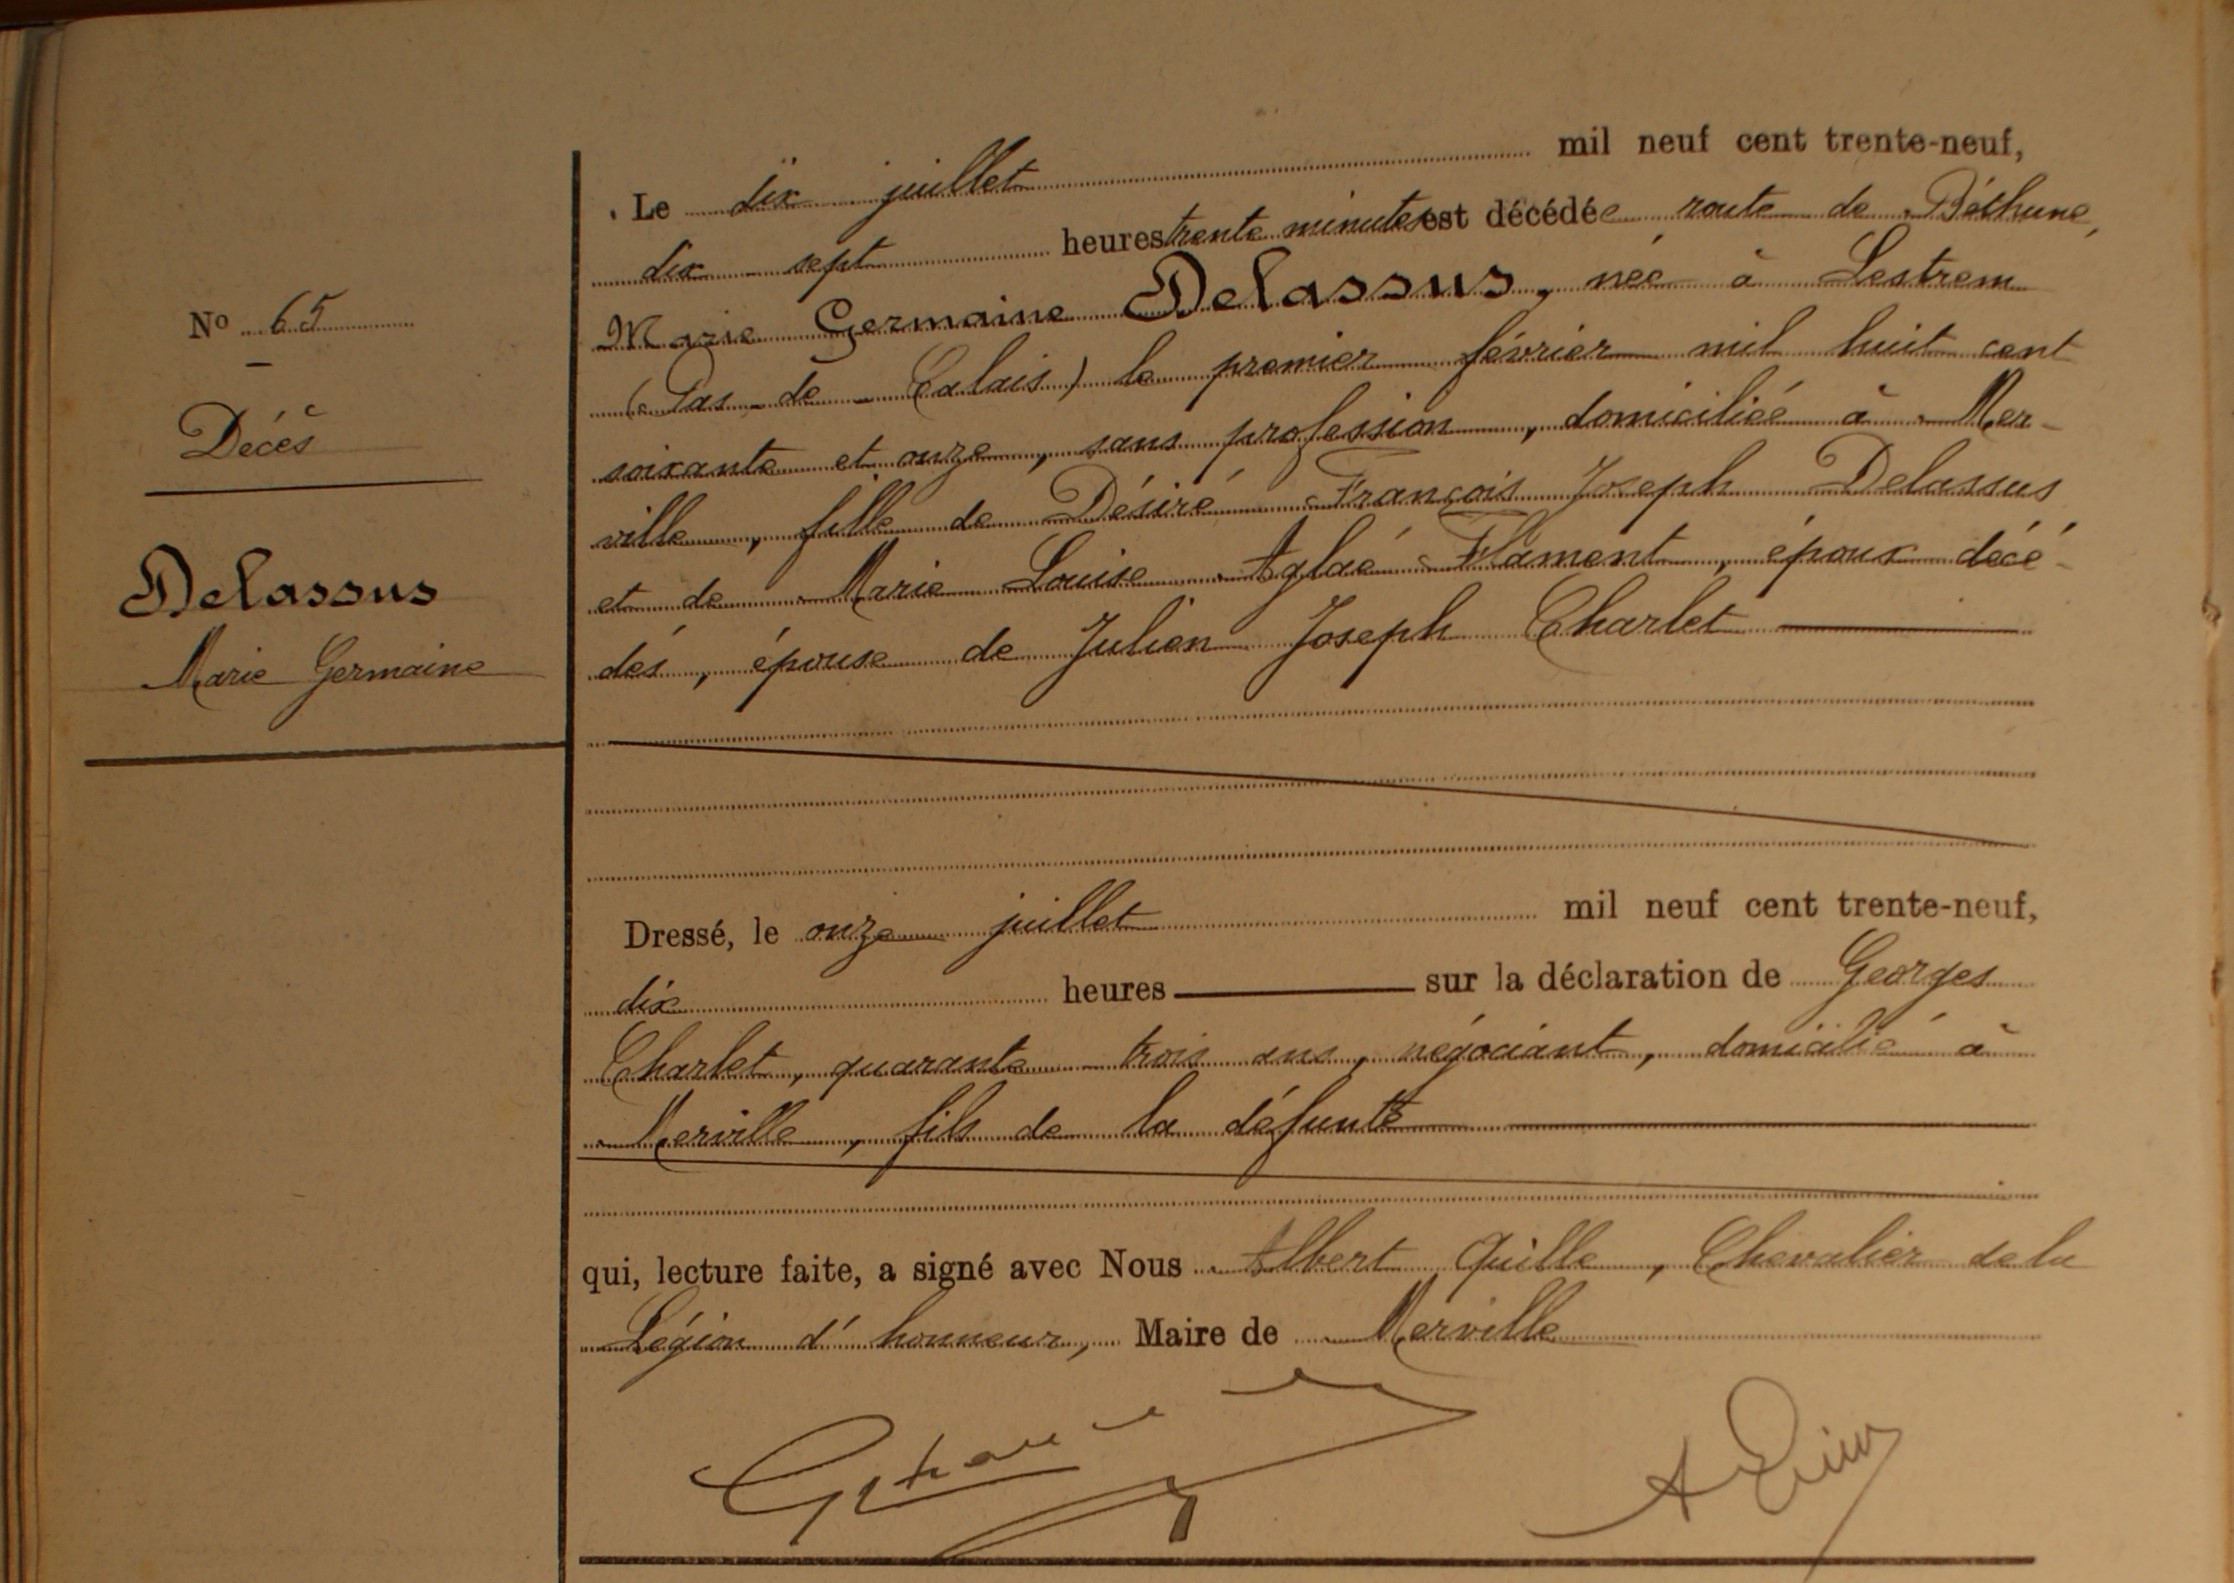 No 65
Décès
Delassus
Marie Germaine
Le dix juillet mil neuf cent trente-neuf,
dix-sept heures trente minutes est décédée route de Béthune,
Marie Germaine Delassus, née à Lestrem
(Pas-de-Calais) le premier février mil huit cent
soixante et onze, sans profession, domiciliée à Mer-
ville, fille de Désiré François Joseph Delassus
et de Marie Louise Aglaé Flament, époux décé-
dés, épouse de Julien Joseph Charlet
Dressé, le onze juillet mil neuf cent trente-neuf,
dix heures sur la déclaration de Georges
Charlet, quarante-trois ans, négociant, domicilié à
Merville, fils de la défunte
qui, lecture faite, a signé avec Nous Albert Quille, Chevalier de la
Légion d'honneur, Maire de Merville